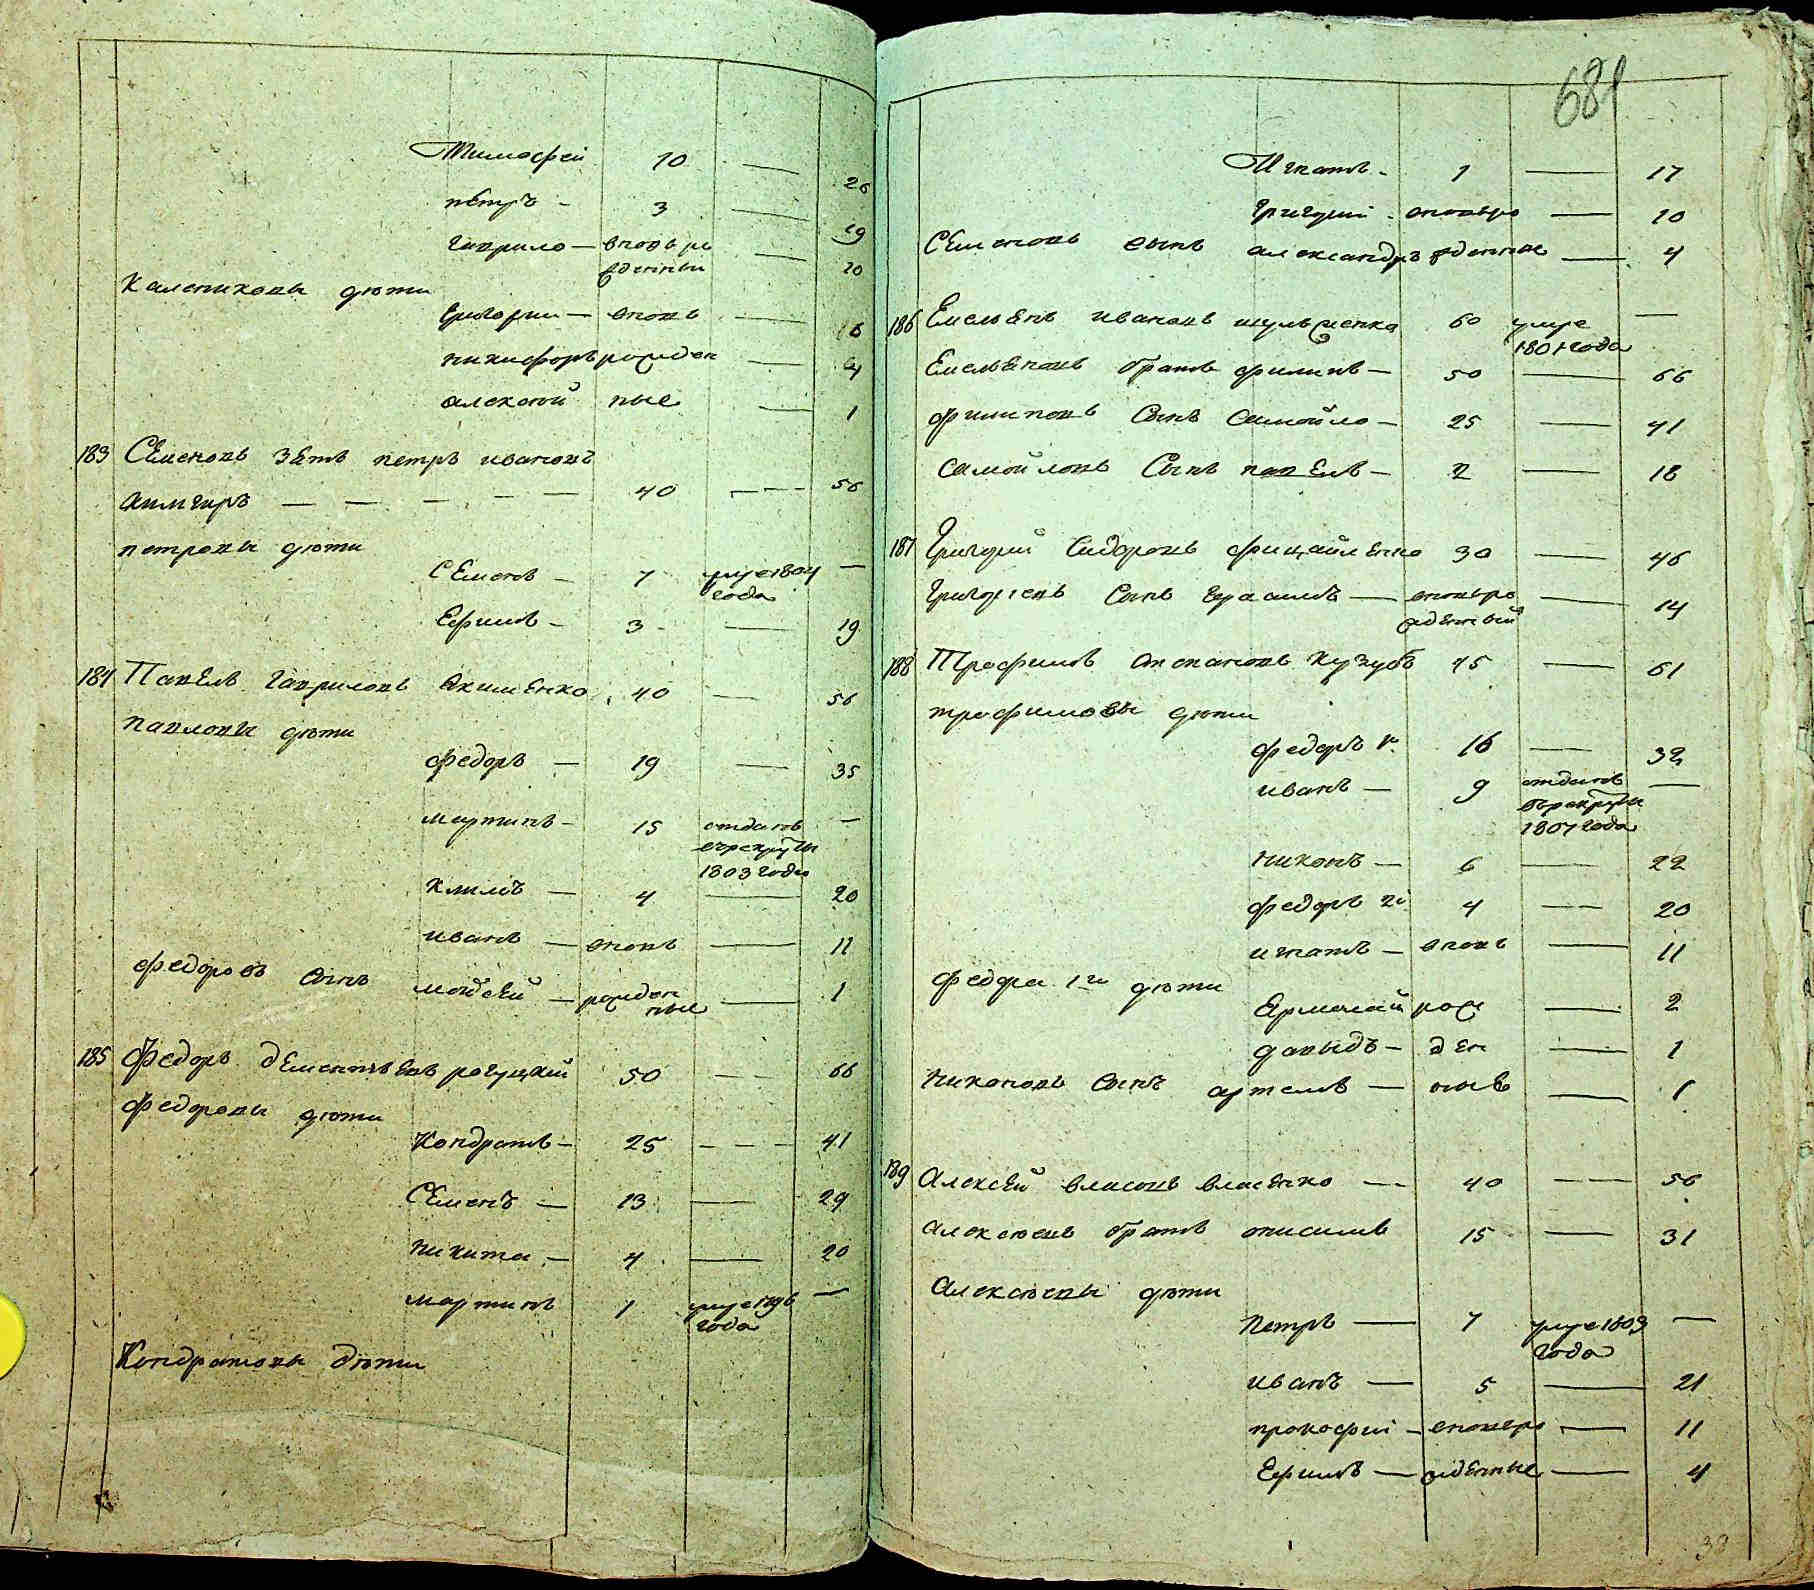 Тимофей 10 — 26
петръ — 3 — 19
гаврило — вновь ро
жденны — 10
Калениковы дѣти
Григории — вновь — 6
никифоръ рожден — 4
алексѣй ные — 1
183 Семеновъ зять петръ ивановъ
— — — — — 40 — 56
петровы дѣти
Семенъ — 7 умре 1804 —
года
Ефимъ — 3 — 19
184 Павелъ гавриловъ Якименко 40 — 56
павловы дѣти
федоръ — 19 — 35
мартинъ — 15 отданъ —
в рекруты
1803 года
климъ — 4 — 20
иванъ — вновь — 11
федоровъ сынъ мойсей — рожден — 1
ные
185 Федоръ дементьевъ рогуцкий 50 — 66
федоровы дѣти
Кондратъ — 25 — — — 41
Семенъ — 13 — 29
никита — 4 — 20
мартинъ 1 умре 1796 —
года
Кондратовы дѣти
681
Игнатъ — 1 — 17
Григорий — вновьро — 10
Семеновъ сынъ александръ жденные — 4
186 Емельянъ ивановъ шульженко 60 умре —
1801 года
Емельяновъ братъ филипъ — 50 — 66
филиповъ Сынъ Самойло — 25 — 41
Самойловъ Сынъ павелъ — 2 — 18
187 Григорий Сидоровъ 30 — 46
Григориевъ Сынъ герасимъ — вновьро — 14
жденный
188 Трофимъ Степановъ Кузубъ 45 — 61
трофимовы дѣти
федоръ 1й 16 — 32
иванъ — 9 отданъ —
в рекруты
1807 года
никонъ — 6 — 22
федоръ 2й 4 — 20
игнатъ — вновь — 11
федора 1го дѣти
Ермолай рож — 2
давыдъ — ден — 1
никоновъ Сынъ артемъ — ные — 1
189 Алексей власовъ власенко — 40 — — 56
алексѣевъ братъ анисимъ 15 — 31
Алексѣевы дѣти
Петръ — 7 умре 1803 —
года
иванъ — 5 — 21
прокофий — вновьро — 11
Ефимъ — жденные — 4
38